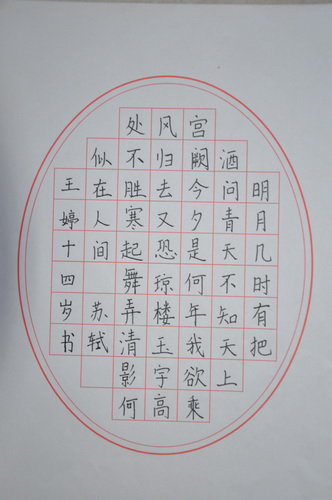 明月几时有把
酒问青天不知天上
宫阙今夕是何年我欲乘
风归去又恐琼楼玉字高
处不胜寒起舞弄清影何
似在人间 苏轼
王婷十四岁书